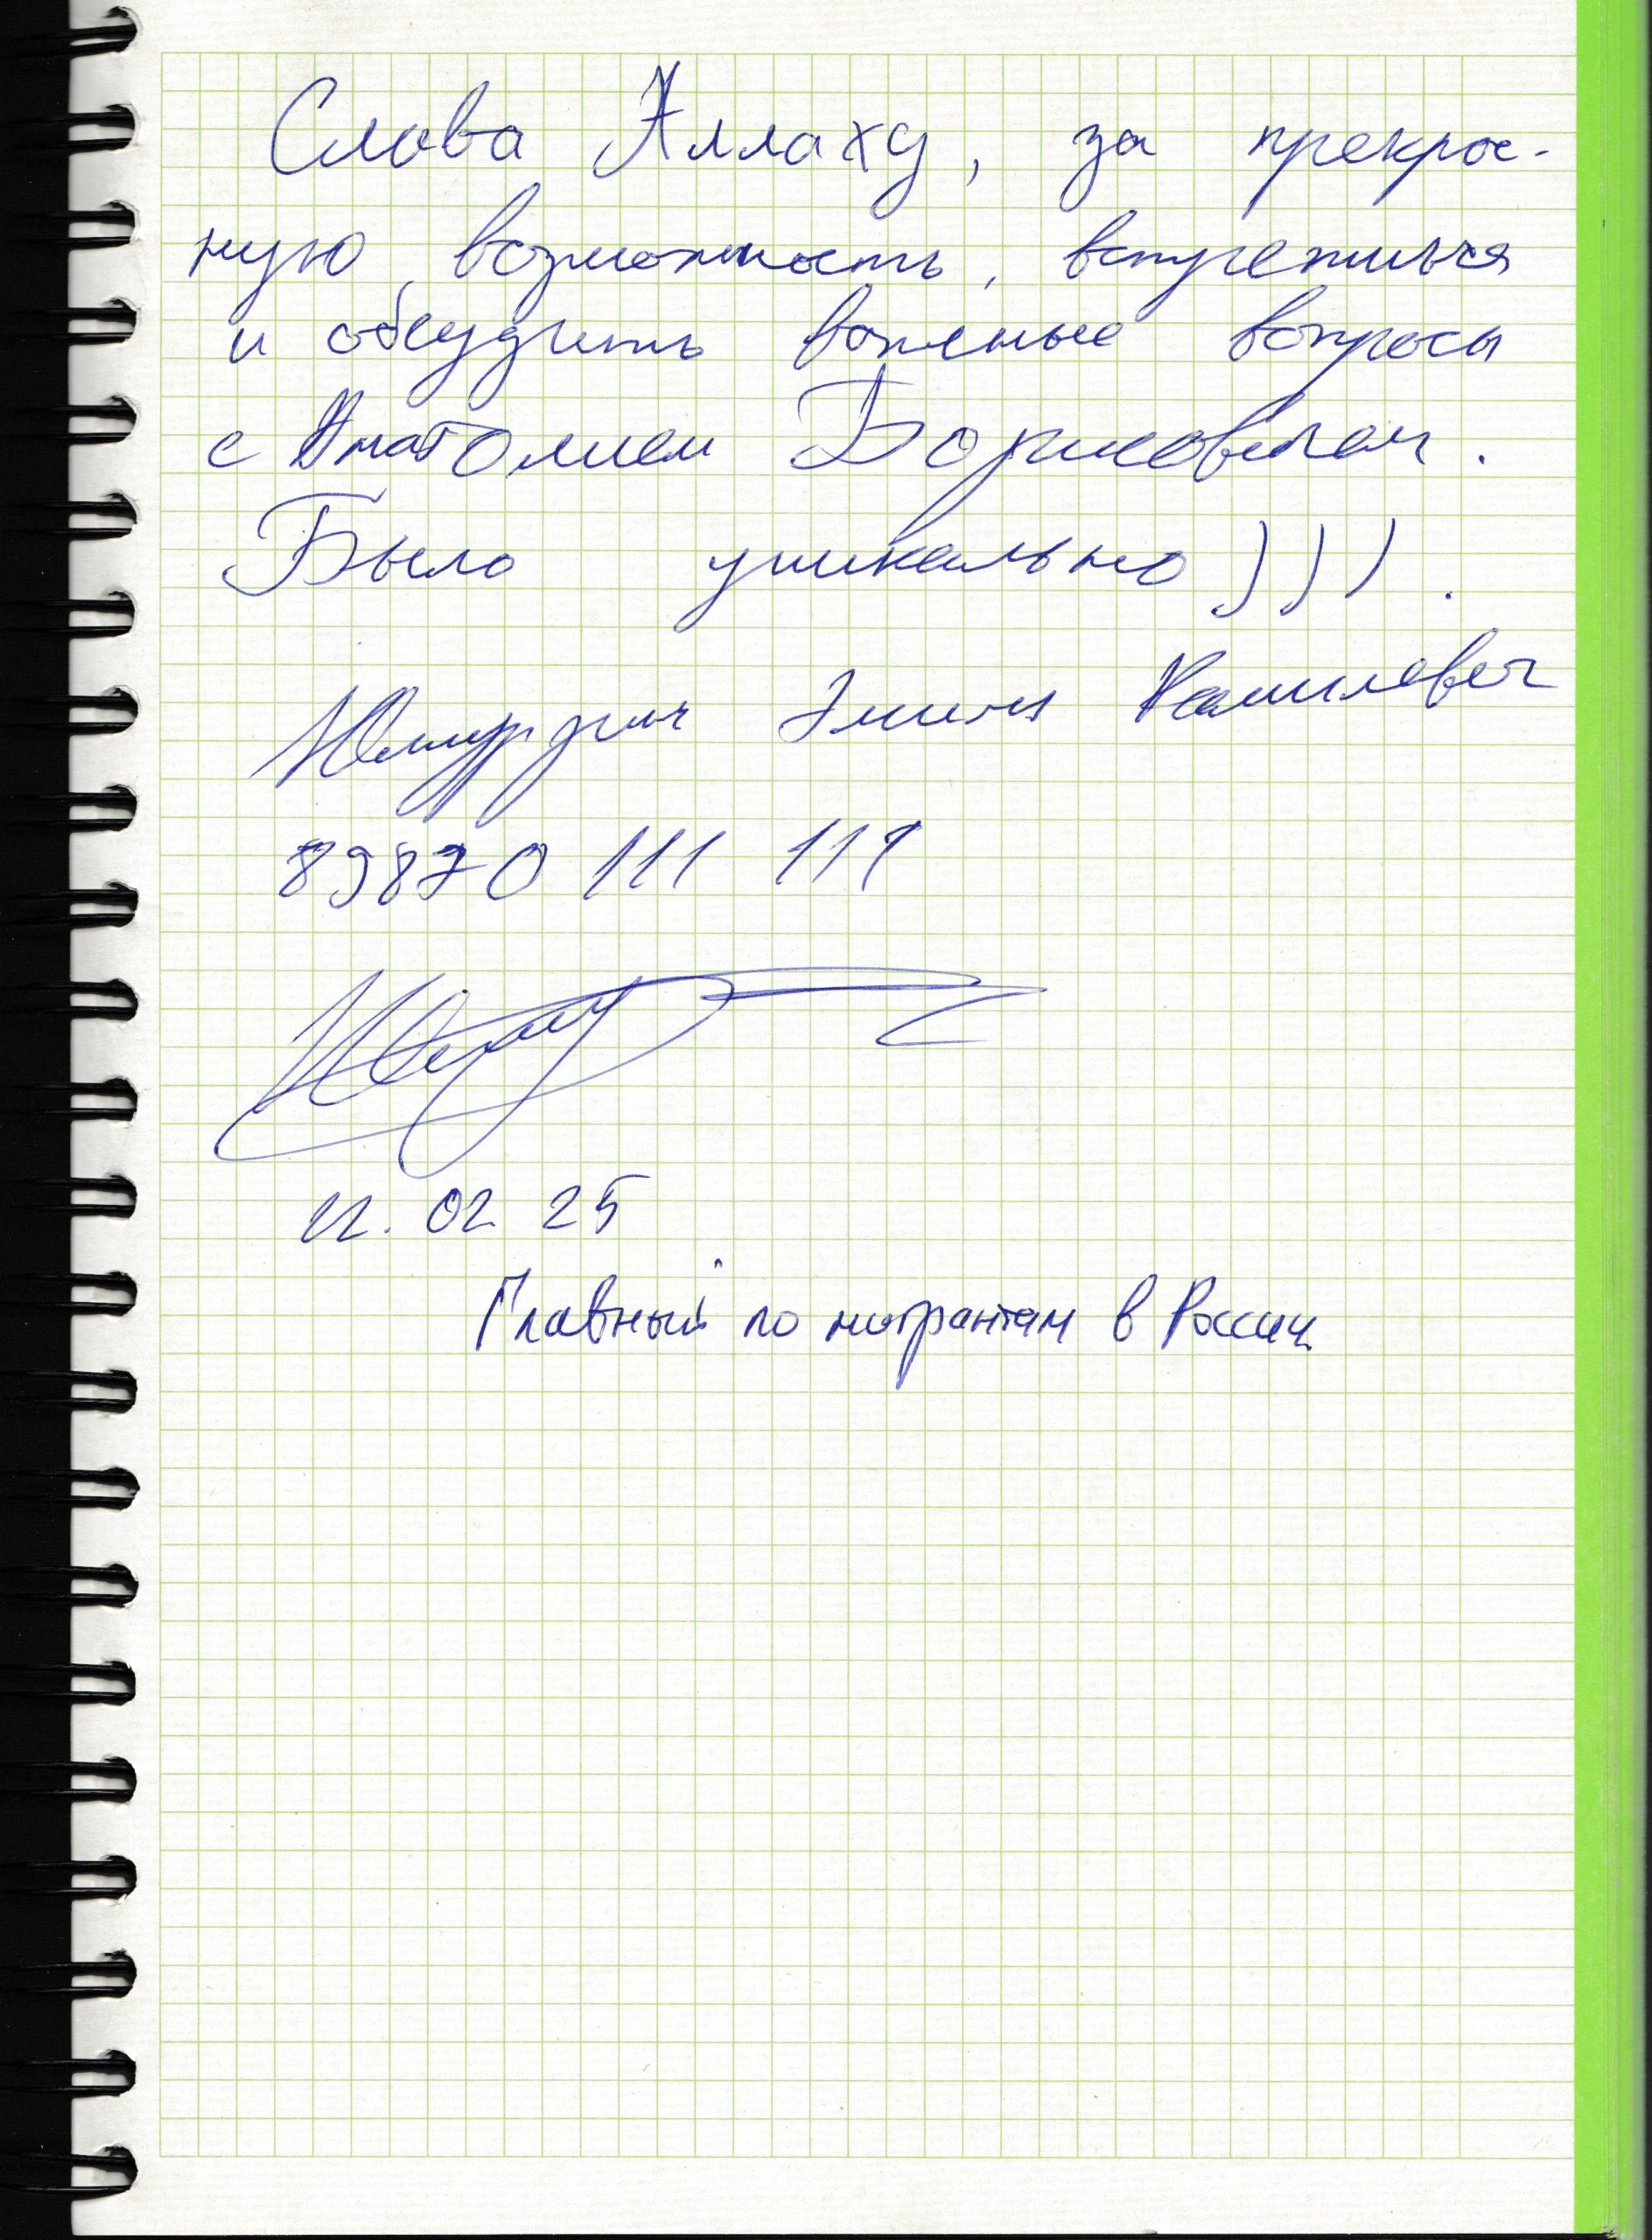 Слава Аллаху, за прекрас-
ную возможность, встретиться
и обсудить важные вопросы
с Анатолием Борисовичем.
Было уникально))).
Эмиль Камилевич
89870 111 111
12.02 25
Главный по мигрантам в России